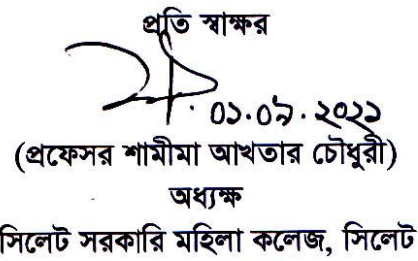 প্রতি স্বাক্ষর
০১.০৯.২০২১
(প্রফেসর শামীমা আখতার চৌধুরী)
অধ্যক্ষ
সিলেট সরকারি মহিলা কলেজ, সিলেট